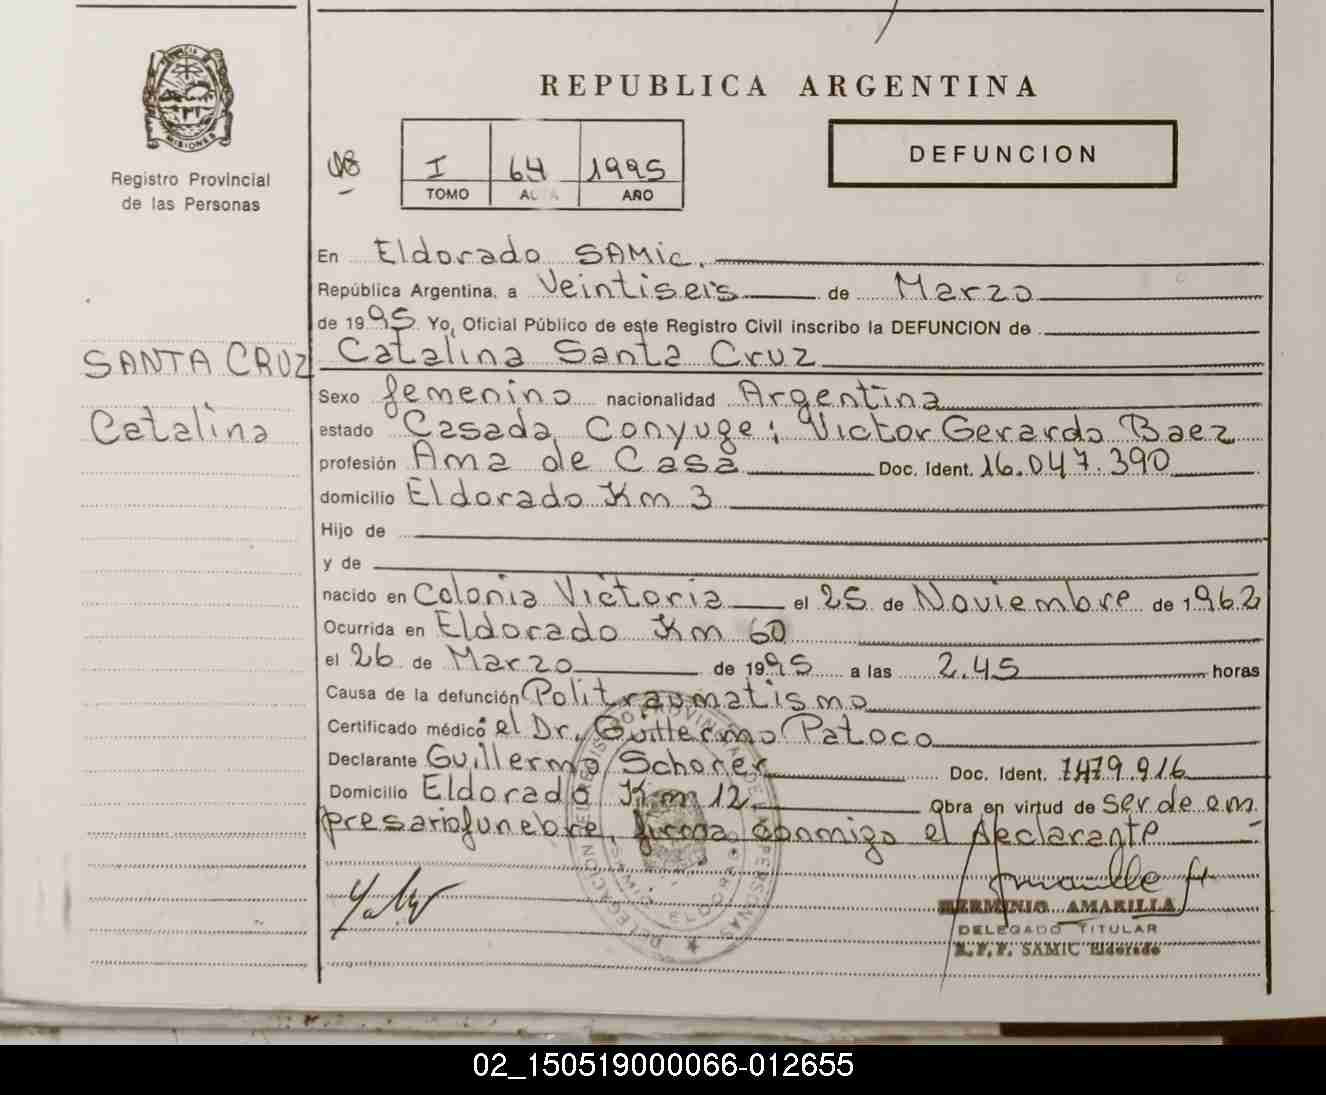 REPUBLICA ARGENTINA
MISIONES
Registro Provincial
de las Personas
I 64 1995
TOMO ACTA AÑO
DEFUNCION
En Eldorado SAMic.
República Argentina, a Veintiseis de Marzo
de 1995 Yo, Oficial Público de este Registro Civil inscribo la DEFUNCION de
SANTA CRUZ
Catalina
Catalina Santa Cruz
Sexo femenino nacionalidad Argentina
estado Casada, Conyuge: Victor Gerardo Baez
profesión Ama de Casa Doc. Ident. 16.047.390
domicilio Eldorado Km 3
Hijo de
y de
nacido en Colonia Victoria el 25 de Noviembre de 1962
Ocurrida en Eldorado Km 60
el 26 de Marzo de 1995 a las 2.45 horas
Causa de la defunción Politraomatismo
Certificado médico el Dr. Guillermo Patoco
Declarante Guillermo Schorer Doc. Ident. 7479.916
Domicilio Eldorado Km 12 Obra en virtud de ser de em
presario funebre, firma conmigo el declarante
HERMINIO AMARILLA
DELEGADO TITULAR
R.P.P. SAMIC Eldorado
02_150519000066-012655